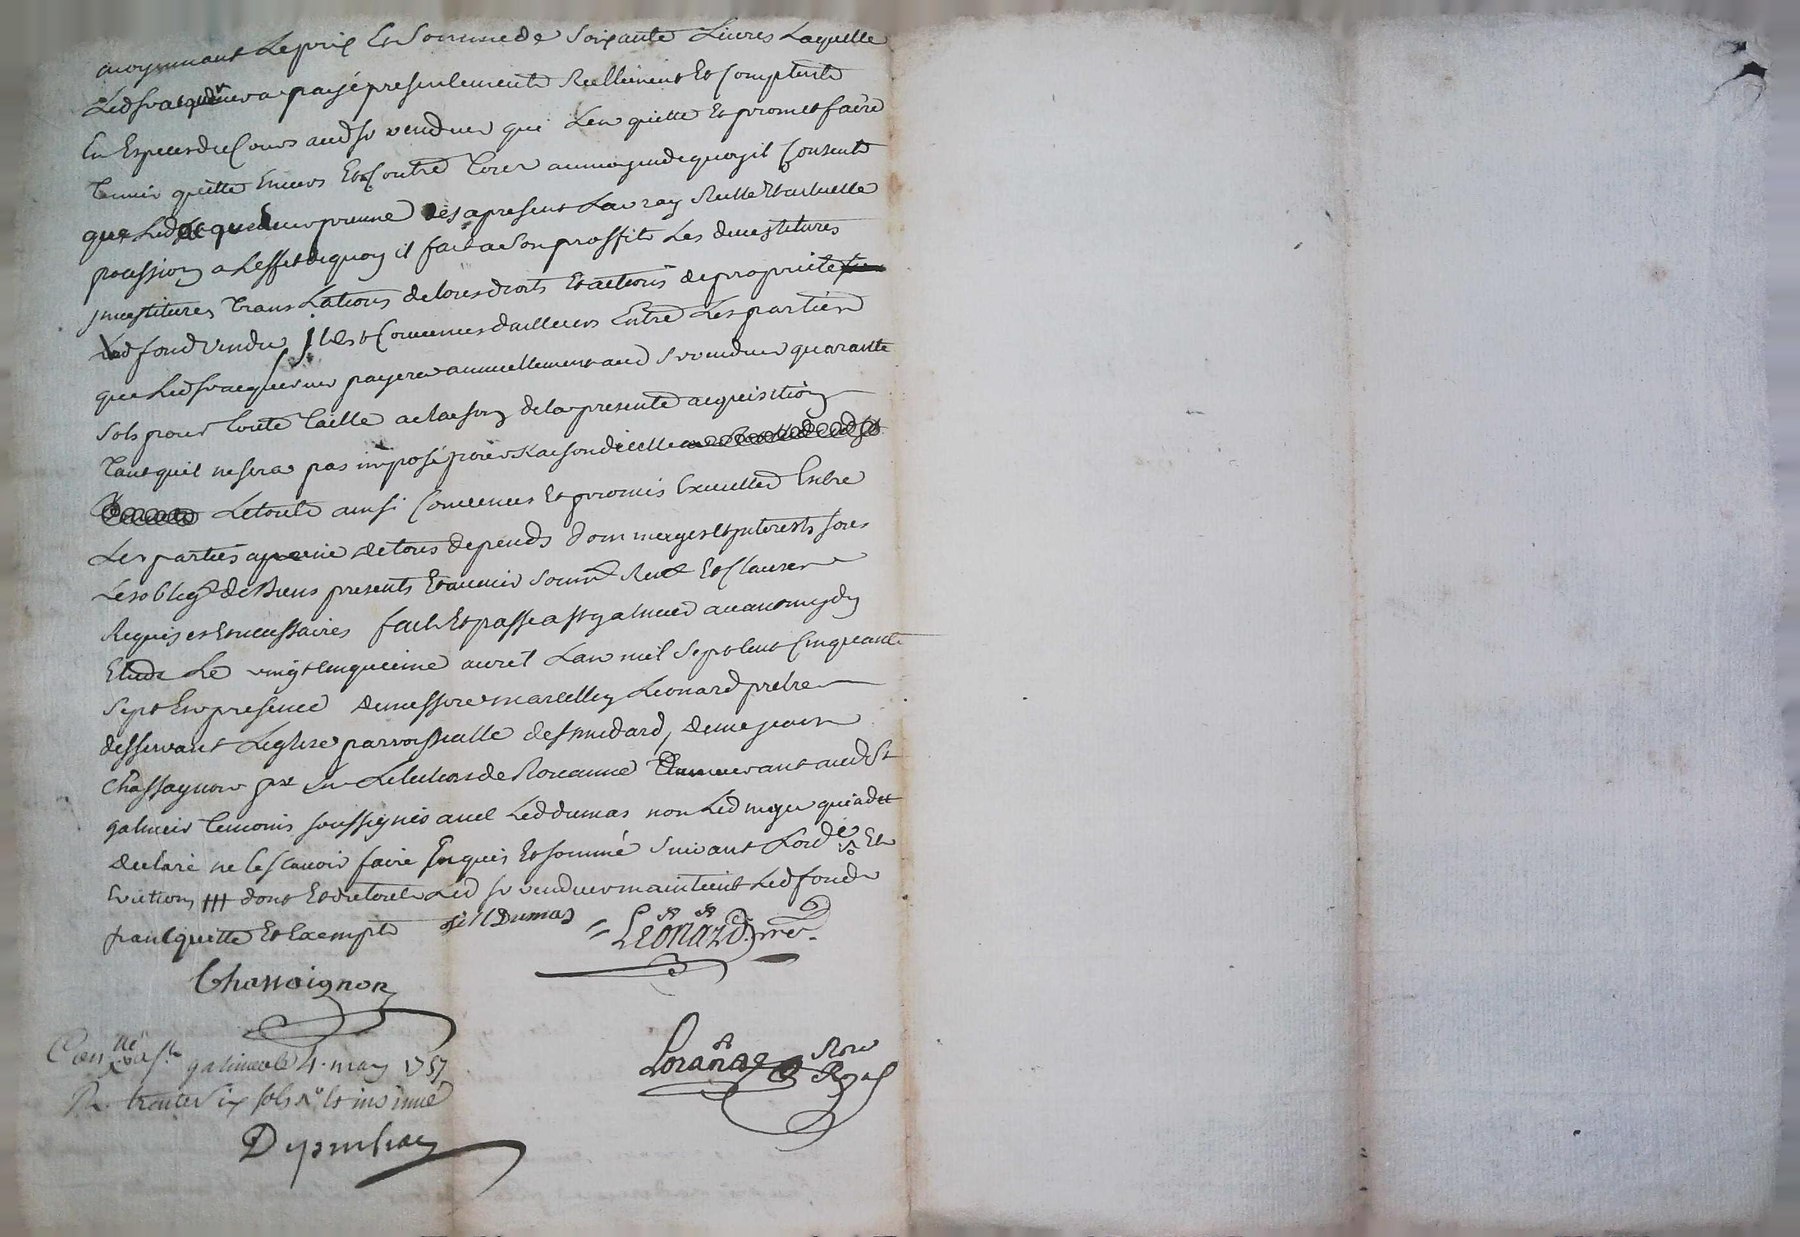 moyennant Le prix Et Somme de Soixante Livres Laquelle
Led sr acquereur a payé presentement Reellement Et Comptent
En Especes du Cours aud sr vendeur qui L'en quitte Et promet faire
tenir quitte Envers Et Contre tous au moyen de quoy il Consent
que Led acquereur prenne dès a present La vray Reelle Et actuelle
pocession a L'effet de quoy il fait a Son proffit Les devestitures
jnvestitures translations de tous droits Et actions de proprieté
Led fond vendu jl Est Convenus d'ailleurs Entre Les parties
que Led sr acquereur payera annuellement aud sr vendeur quarante
Sols pour toute taille a raison de la presente acquisition
tant quil ne sera pas imposé pour Raison d'icelle
Le tout ainsi Convenus Et promis Executter Entre
Les parties a peine de tous depends dommages Et jnterests sous
Les oblig de Biens presents Et avenir Soumn Ren Et Clauses
Requises Et necessaires fait Et passé a St galmier avant mydy
Etude Le vingt cinquieme avril L'an mil Sept Cent Cinquante
Sept En presence de messire marcellin Leonard prêtre
desservant L'eglise parroissialle de St medard, de me jean
Chassaignon En L'election de Roanne demeurant aud St
galmier temoins soussignés avec Led dumas non Led qui a
declaré ne le scavoir faire Enquis Et sommé suivant L'ord Et
Eviction /// dont Et du tout Led sr vendeur maintient Led fond
franc quitte Et Exempt Dumas Leonard ptre
Chassaignon
Con lé a St galmier le 4. may 1757
R. trente six sols Et insinué
Roy al